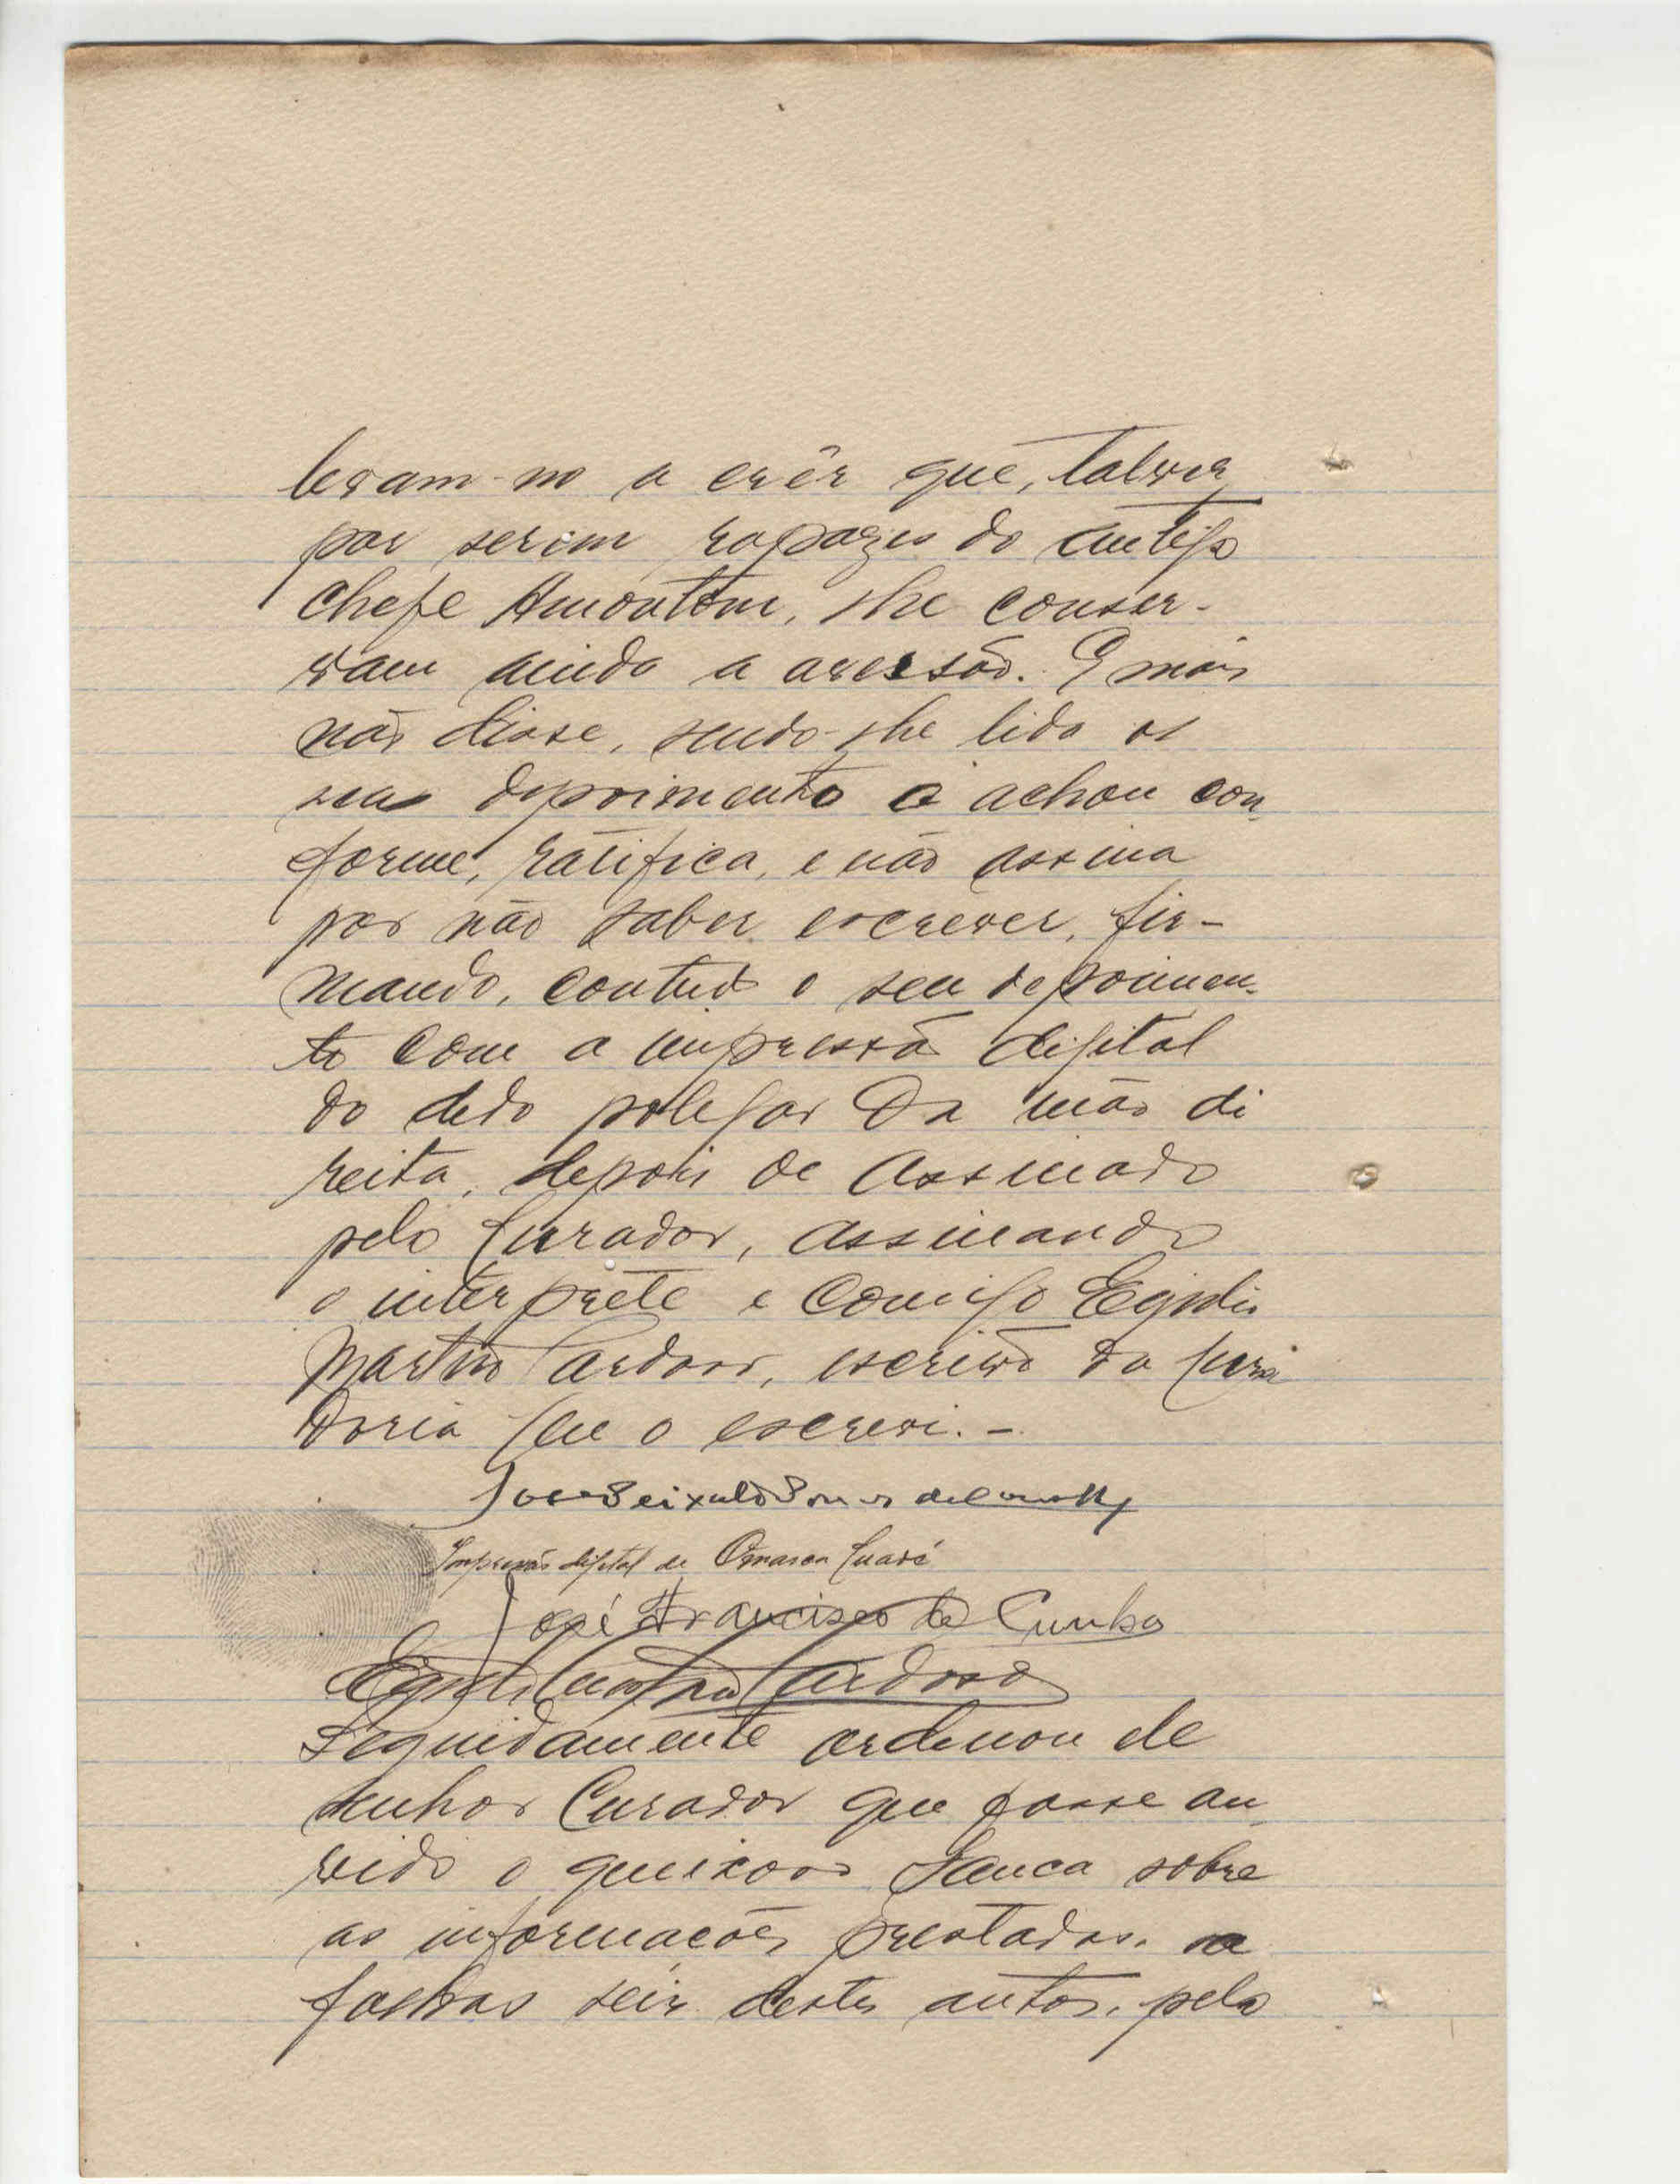 levam-no a crêr que, talvez
por serem rapazes do antigo
chefe Amontom, lhe conser-
vam ainda a aversão. E mais
não disse, sendo-lhe lido os
seus depoimento o achou con-
forme, ratifica, e não assina
por não saber escrever, fir-
mando, contudo o seu depoimen-
to com a impressão digital
do dedo polegar da mão di
reita, depois de assinado
pelo Curador, assinando
o interprete e comigo Egidio
Martins Cardoso, escrivão da Cura
doria que o escrevi. -
Impressão digital de
José Francisco da Cunha
Egidio Martins Cardoso
Seguidamente ordenou ele
senhor Curador que fosse ou
vido o queixoso Sanca sobre
as informações prestadas. a
folhas seis destes autos. pelo